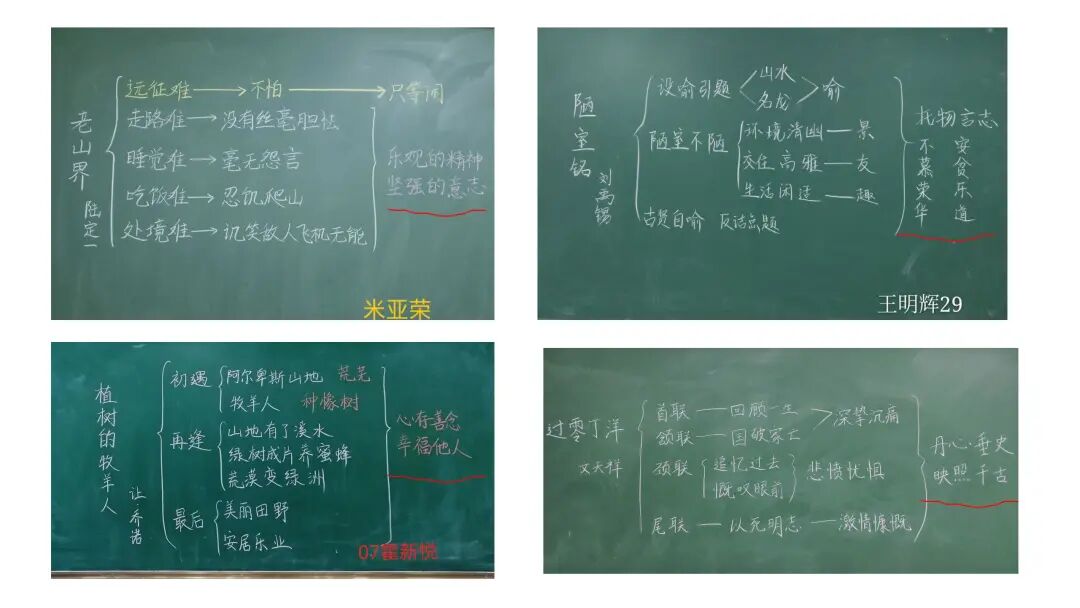 老山界
陆定一
远征难 → 不怕 → 只等闲
走路难 → 没有丝毫胆怯
睡觉难 → 毫无怨言
吃饭难 → 忍饥爬山
处境难 → 讥笑敌人飞机无能
乐观的精神
坚强的意志
米亚荣
陋室铭
刘禹锡
设喻引题
山水
名龙
喻
陋室不陋
环境清幽 — 景
交往高雅 — 友
生活闲适 — 趣
古贤自喻 反诘点题
托物言志
不慕荣华
安贫乐道
王明辉29
植树的牧羊人
让·乔诺
初遇
阿尔卑斯山地 荒芜
牧羊人 种橡树
再逢
山地有了溪水
绿树成片养蜜蜂
荒漠变绿洲
最后
美丽田野
安居乐业
心存善念
幸福他人
07霍新悦
过零丁洋
文天祥
首联 — 回顾一生
颔联 — 国破家亡
深挚沉痛
颈联
追忆过去
慨叹眼前
悲愤忧惧
尾联 — 以死明志 — 激情慷慨
丹心·垂史
映照千古